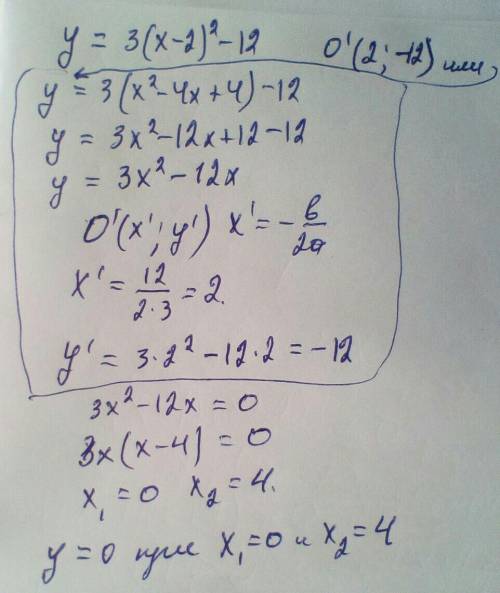 y = 3(x-2)²-12 O'(2;-12) или,
y = 3(x²-4x+4)-12
y = 3x²-12x+12-12
y = 3x²-12x
O'(x';y') x' = -в/2a
x' = 12/2·3 = 2.
y' = 3·2²-12·2 = -12
3x²-12x = 0
3x(x-4) = 0
x₁ = 0 x₂ = 4.
y = 0 при x₁=0 и x₂=4